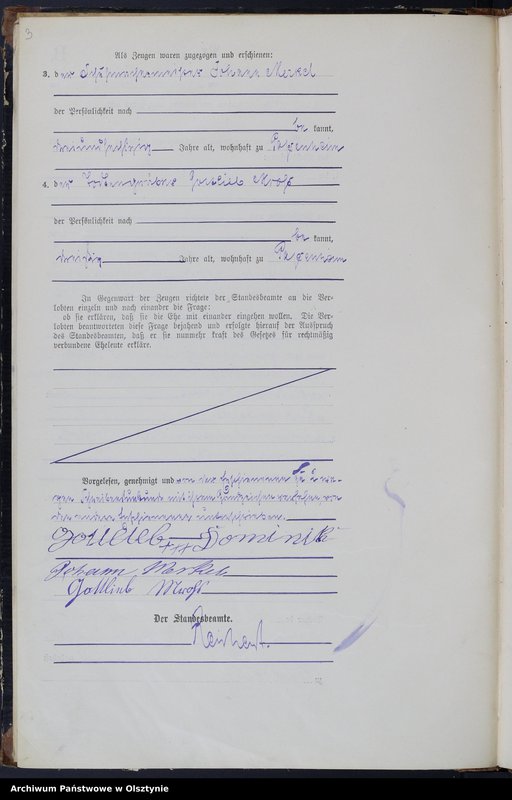 3
Als Zeugen waren zugezogen und erschienen:
3. der Schuhmachermeister Johann Merkel
der Persönlichkeit nach
be kannt,
Jahre alt, wohnhaft zu
4. der Gottlieb
der Persönlichkeit nach
be kannt,
dreißig Jahre alt, wohnhaft zu
In Gegenwart der Zeugen richtete der Standesbeamte an die Ver-
lobten einzeln und nach einander die Frage:
ob sie erklären, daß sie die Ehe mit einander eingehen wollen. Die Ver-
lobten beantworteten diese Frage bejahend und erfolgte hierauf der Ausspruch
des Standesbeamten, daß er sie nunmehr kraft des Gesetzes für rechtmäßig
verbundene Eheleute erkläre.
Vorgelesen, genehmigt und von der Erschienenen
mit ihrem Handzeichen versehen von
den anderen Erschienenen unterschrieben.
Gottlieb Dominik
+++
Johann Merkel
Gottlieb
Der Standesbeamte.
Archiwum Państwowe w Olsztynie